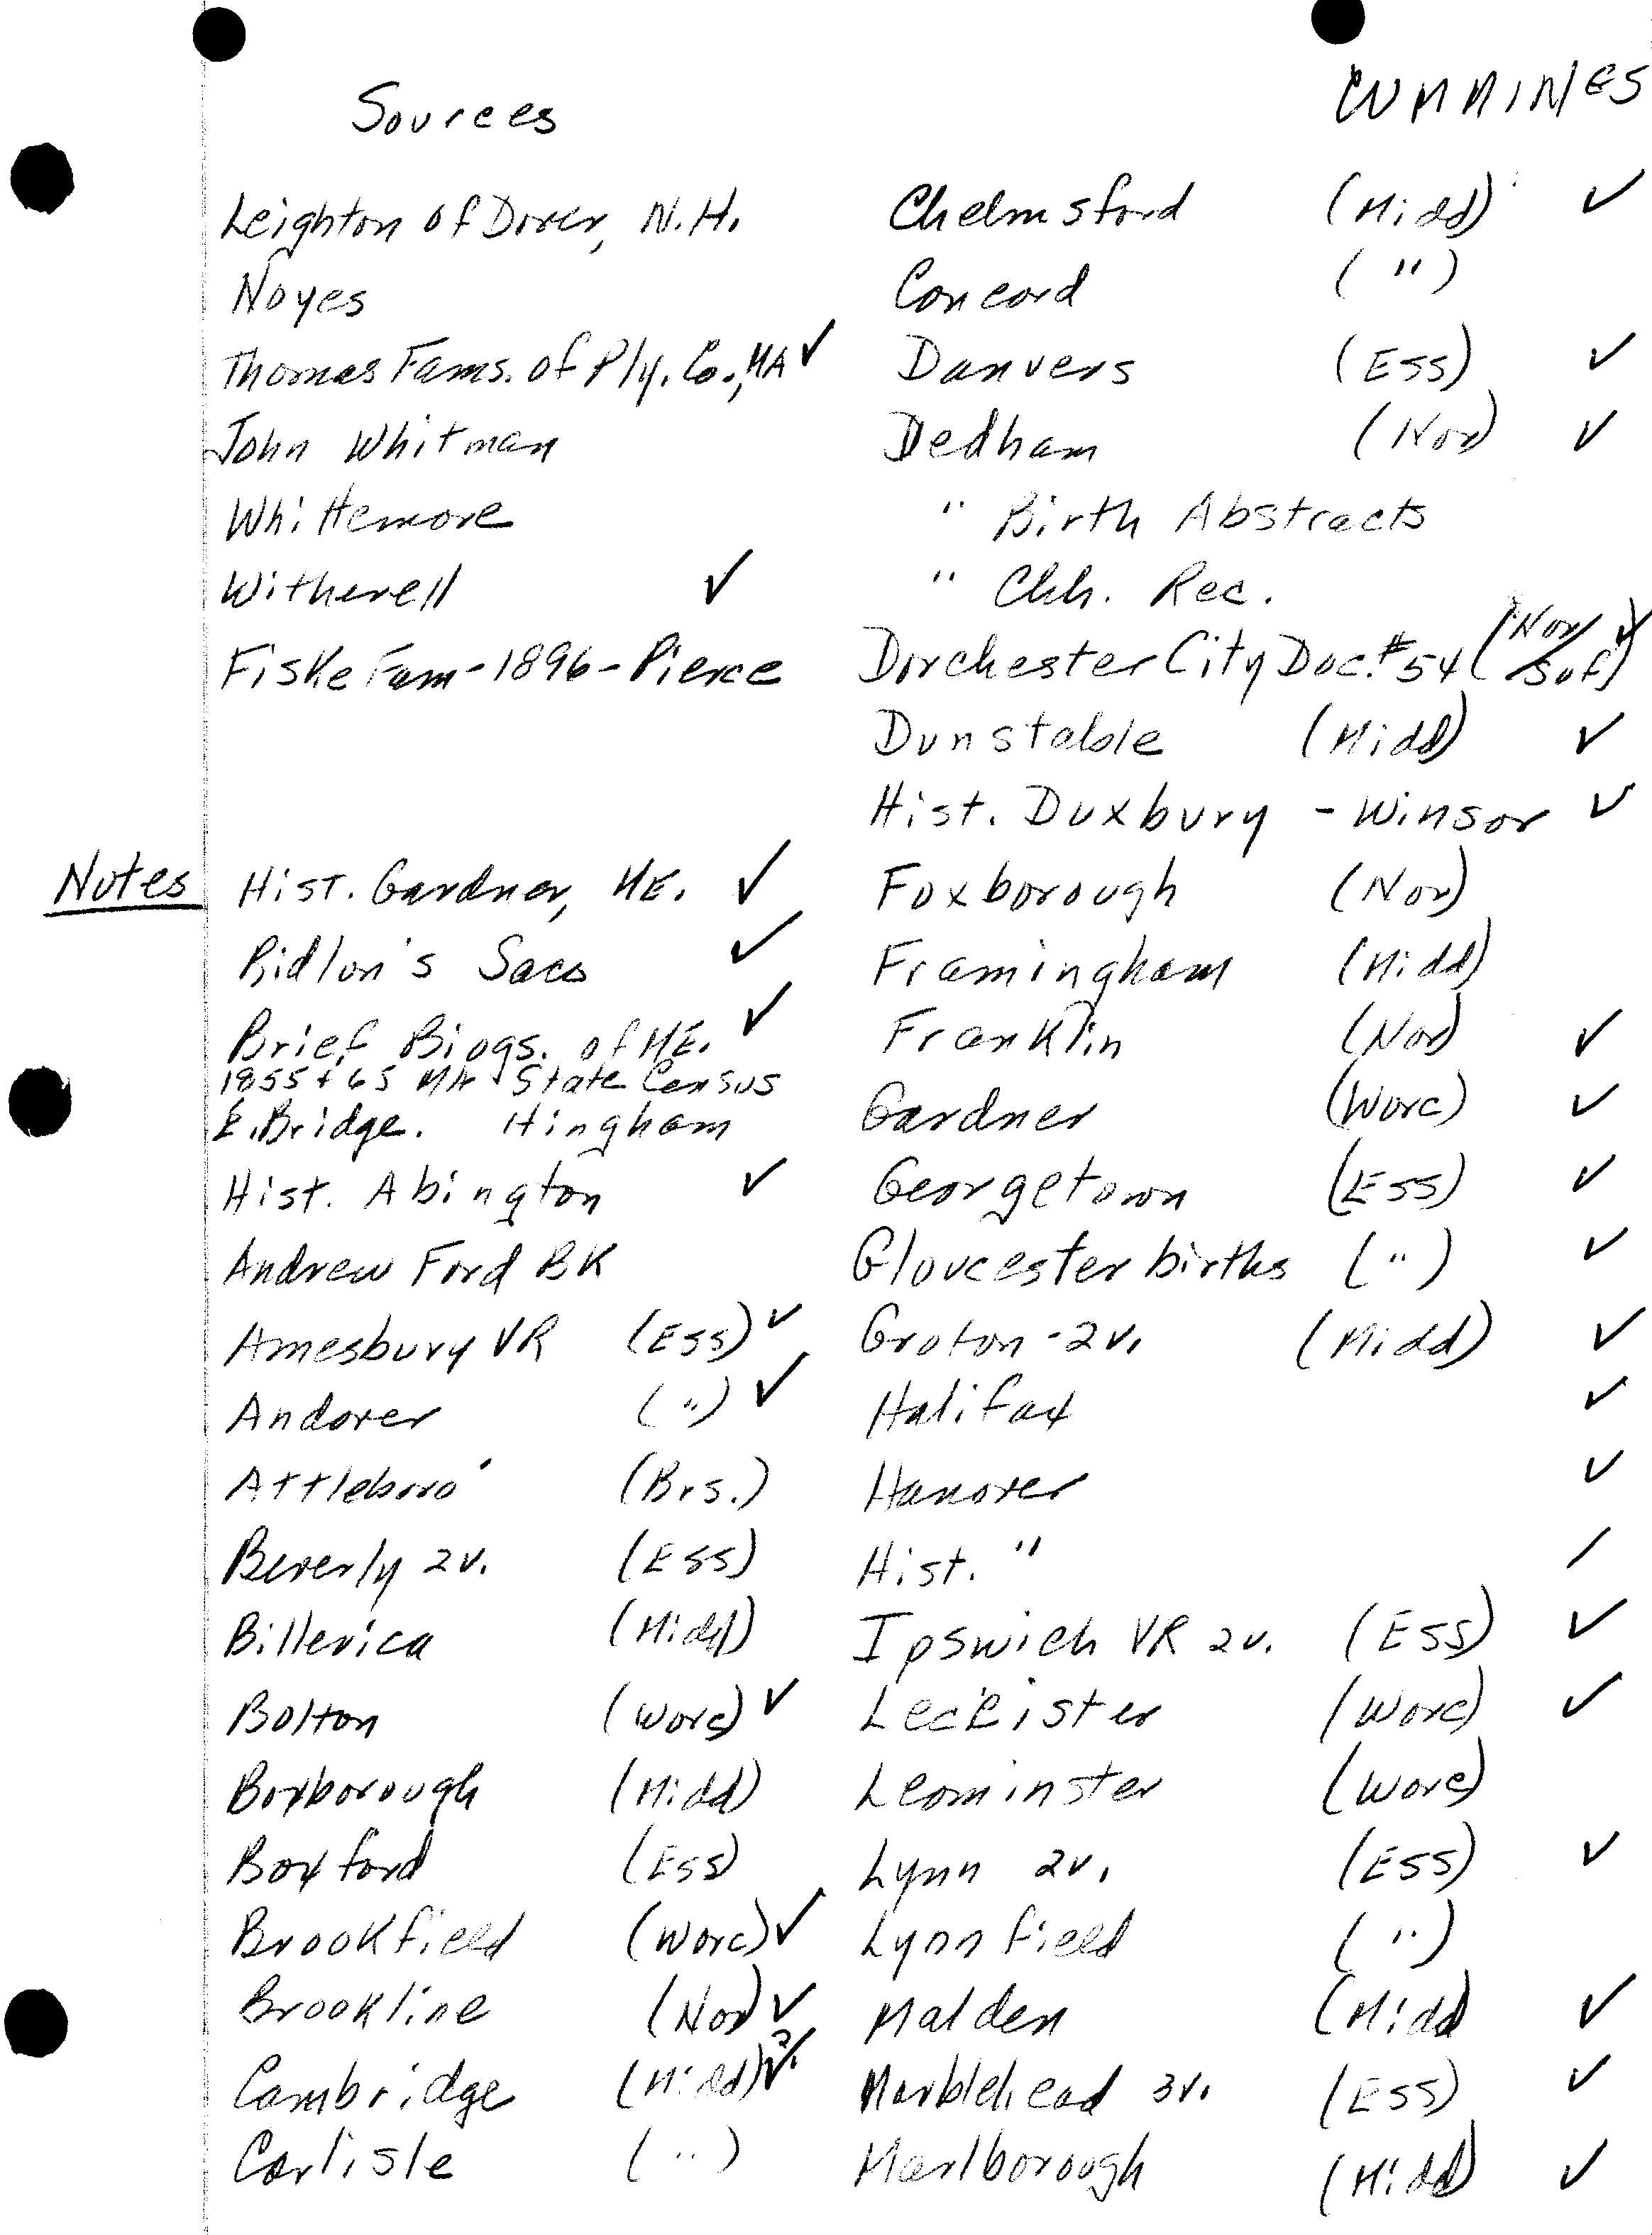 Sources
CUMMINGS
Leighton of Dover, N.H.
Noyes
Thomas Fams. of Ply. Co., MA ✓
John Whitman
Whittemore
Witherell ✓
Fiske Fam - 1896 - Pierce
Notes
Hist. Gardner, ME. ✓
Ridlon's Saco ✓
Brief Biogs. of ME. ✓
1855 + 65 MA State Census
E. Bridge. Hingham
Hist. Abington ✓
Andrew Ford BK
Amesbury VR (Ess) ✓
Andover (") ✓
Attleboro' (Brs.)
Beverly 2v. (Ess)
Billerica (Midd)
Bolton (Worc) ✓
Boxborough (Midd)
Boxford (Ess)
Brookfield (Worc) ✓
Brookline (Nor) ✓
Cambridge (Midd) 2v. ✓
Carlisle (")
Chelmsford (Midd) ✓
Concord (")
Danvers (Ess) ✓
Dedham (Nor) ✓
" Birth Abstracts
" Chh. Rec.
Dorchester City Doc. #54 (Nor/Suf) ✓
Dunstable (Midd) ✓
Hist. Duxbury - Winsor ✓
Foxborough (Nor)
Framingham (Midd)
Franklin (Nor) ✓
Gardner (Worc) ✓
Georgetown (Ess) ✓
Gloucester births (") ✓
Groton - 2v. (Midd) ✓
Halifax ✓
Hanover ✓
Hist. " /
Ipswich VR 2v. (Ess) ✓
(Worc) ✓
Leominster (Worc)
Lynn 2v. (Ess) ✓
Lynnfield (")
Malden (Midd) ✓
Marblehead 3v. (Ess) ✓
Marlborough (Midd) ✓